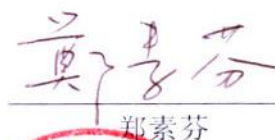 鄭素芬
郑素芬